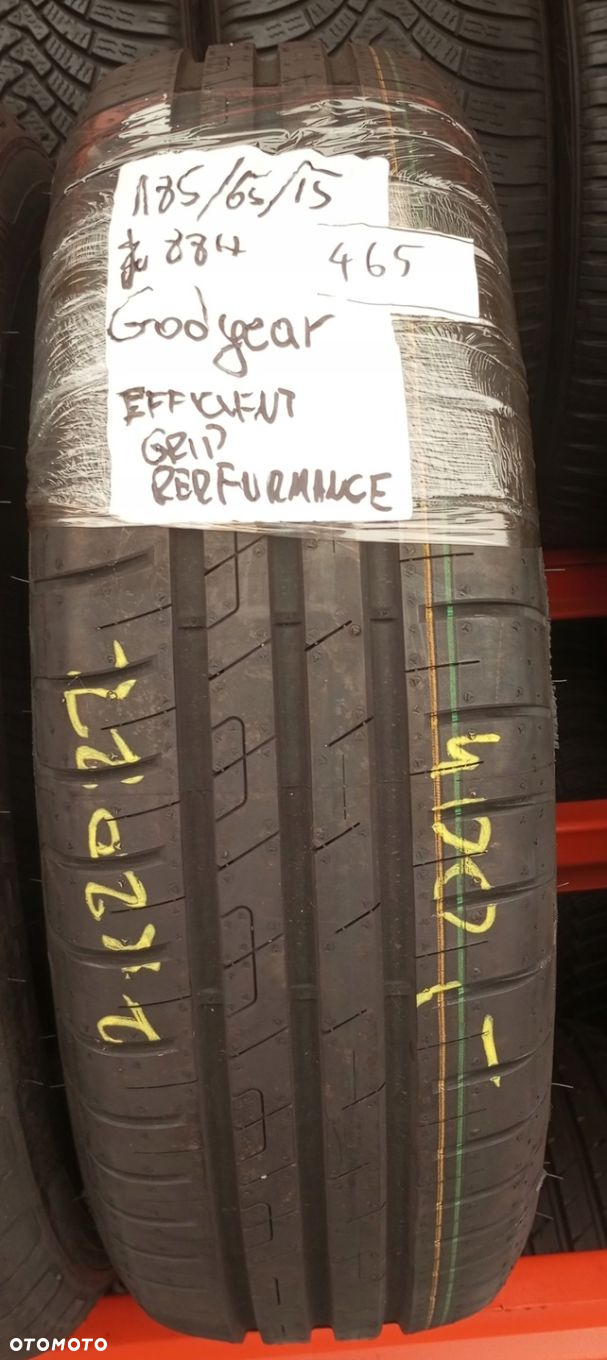 185/65/15
88H
465
Godyear
EFFICIENT
GRIP
RERFURMANCE
OTOMOTO